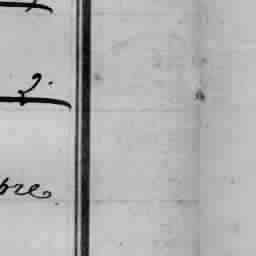 2.
bre